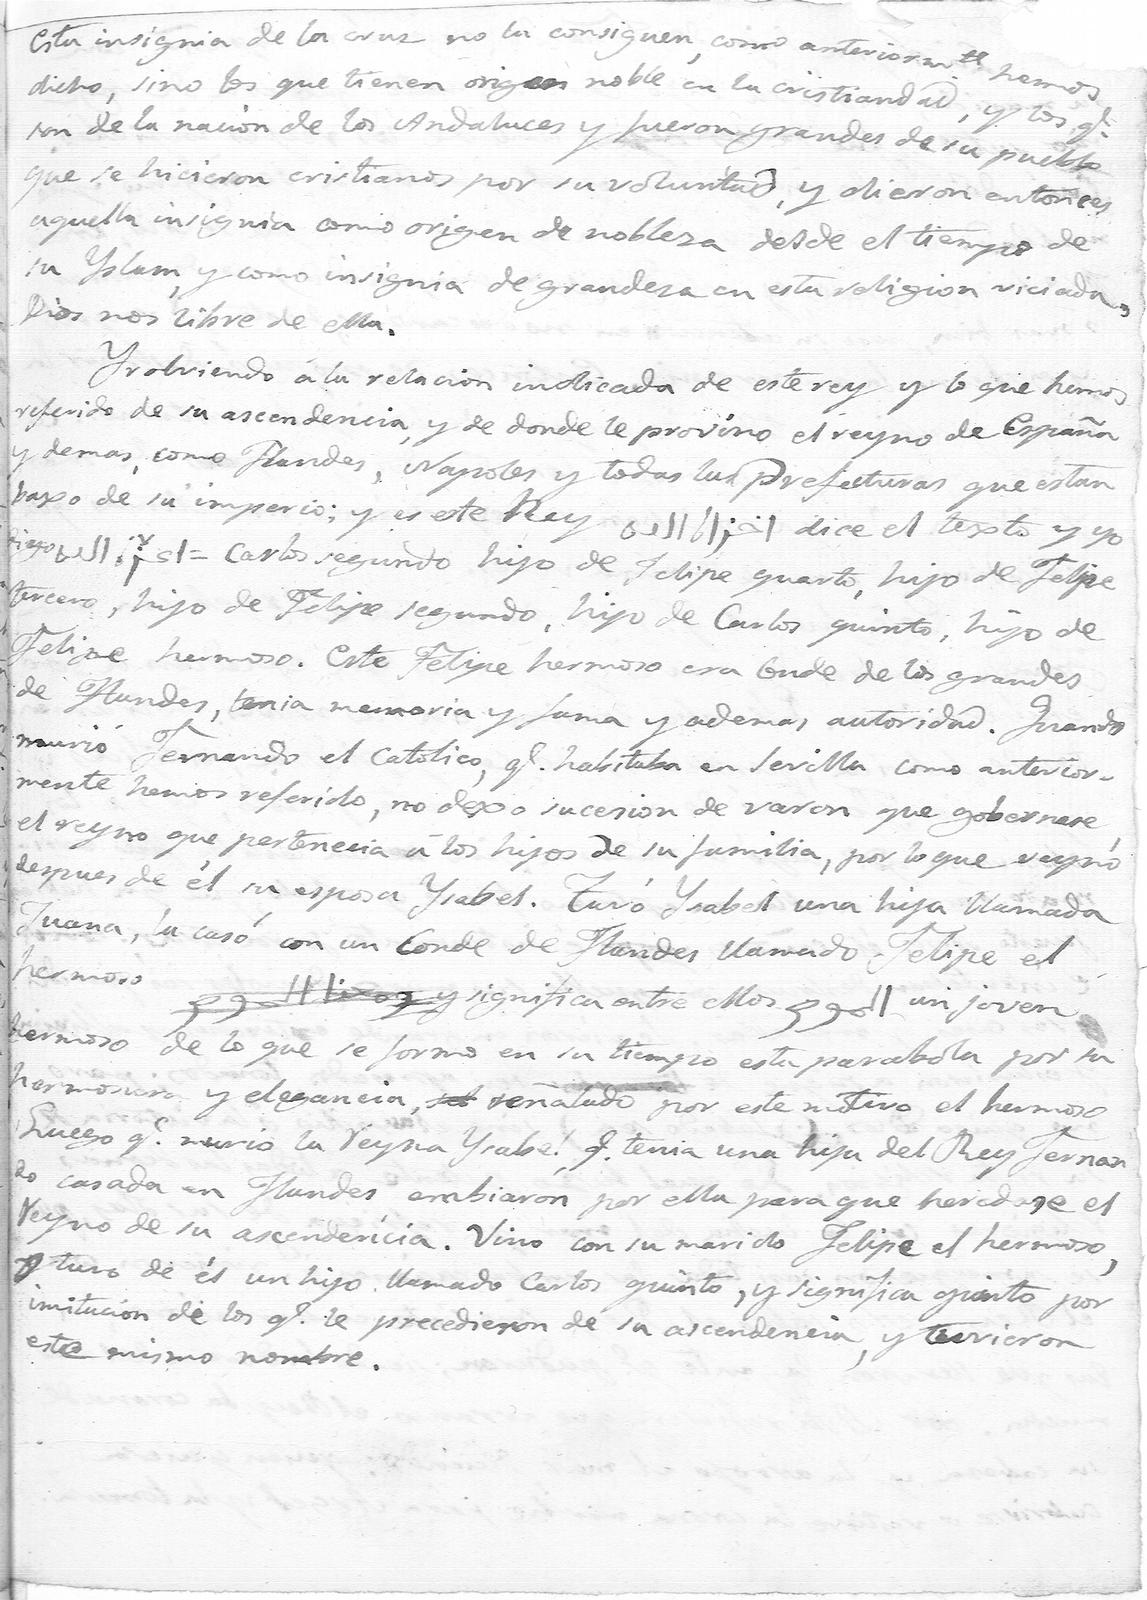 Esta insignia de la cruz no la consiguen, como anteriorm.te hemos
dicho, sino los que tienen origen noble en la cristiandad, y los q.e
son de la nacion de los Andaluces y fueron grandes de su pueblo
que se hicieron cristianos por su voluntad, y dieron entonces
aquella insignia como origen de nobleza desde el tiempo de
su Yslam, y como insignia de grandeza en esta religion viciada,
Dios nos libre de ella.
Y volviendo á la relacion indicada de este rey y lo que hemos
referido de su ascendencia, y de donde le provino el reyno de España
y demas, como Flandes, Napoles y todas las Prefecturas que estan
baxo de su imperio; y es este Rey dice el texto y yo
digo = Carlos segundo hijo de Felipe quarto, hijo de Felipe
tercero, hijo de Felipe segundo, hijo de Carlos quinto, hijo de
Felipe hermoso. Este Felipe hermoso era Conde de los grandes
de Flandes, tenia memoria y fama y ademas autoridad. Quando
murió Fernando el Católico, q.e habitaba en Sevilla como anterior-
mente hemos referido, no dexo sucesion de varon que gobernase
el reyno que pertenecia á los hijos de su familia, por lo que reynó
despues de él su esposa Ysabel. Tuvó Ysabel una hija llamada
Juana, la casó con un Conde de Flandes llamado Felipe el
hermoso y significa entre ellos un joven
hermoso de lo que se formo en su tiempo esta parabola por su
hermosura y elegancia, señalado por este motivo el hermoso
Luego q.e murió la Reyna Ysabel, q.e tenia una hija del Rey Fernan
do casada en Flandes embiaron por ella para que heredase el
Reyno de su ascendencia. Vino con su marido Felipe el hermoso,
y tuvo de él un hijo llamado Carlos quinto, y significa quinto por
imitacion de los q.e le precedieron de su ascendencia, y tuvieron
este mismo nombre.